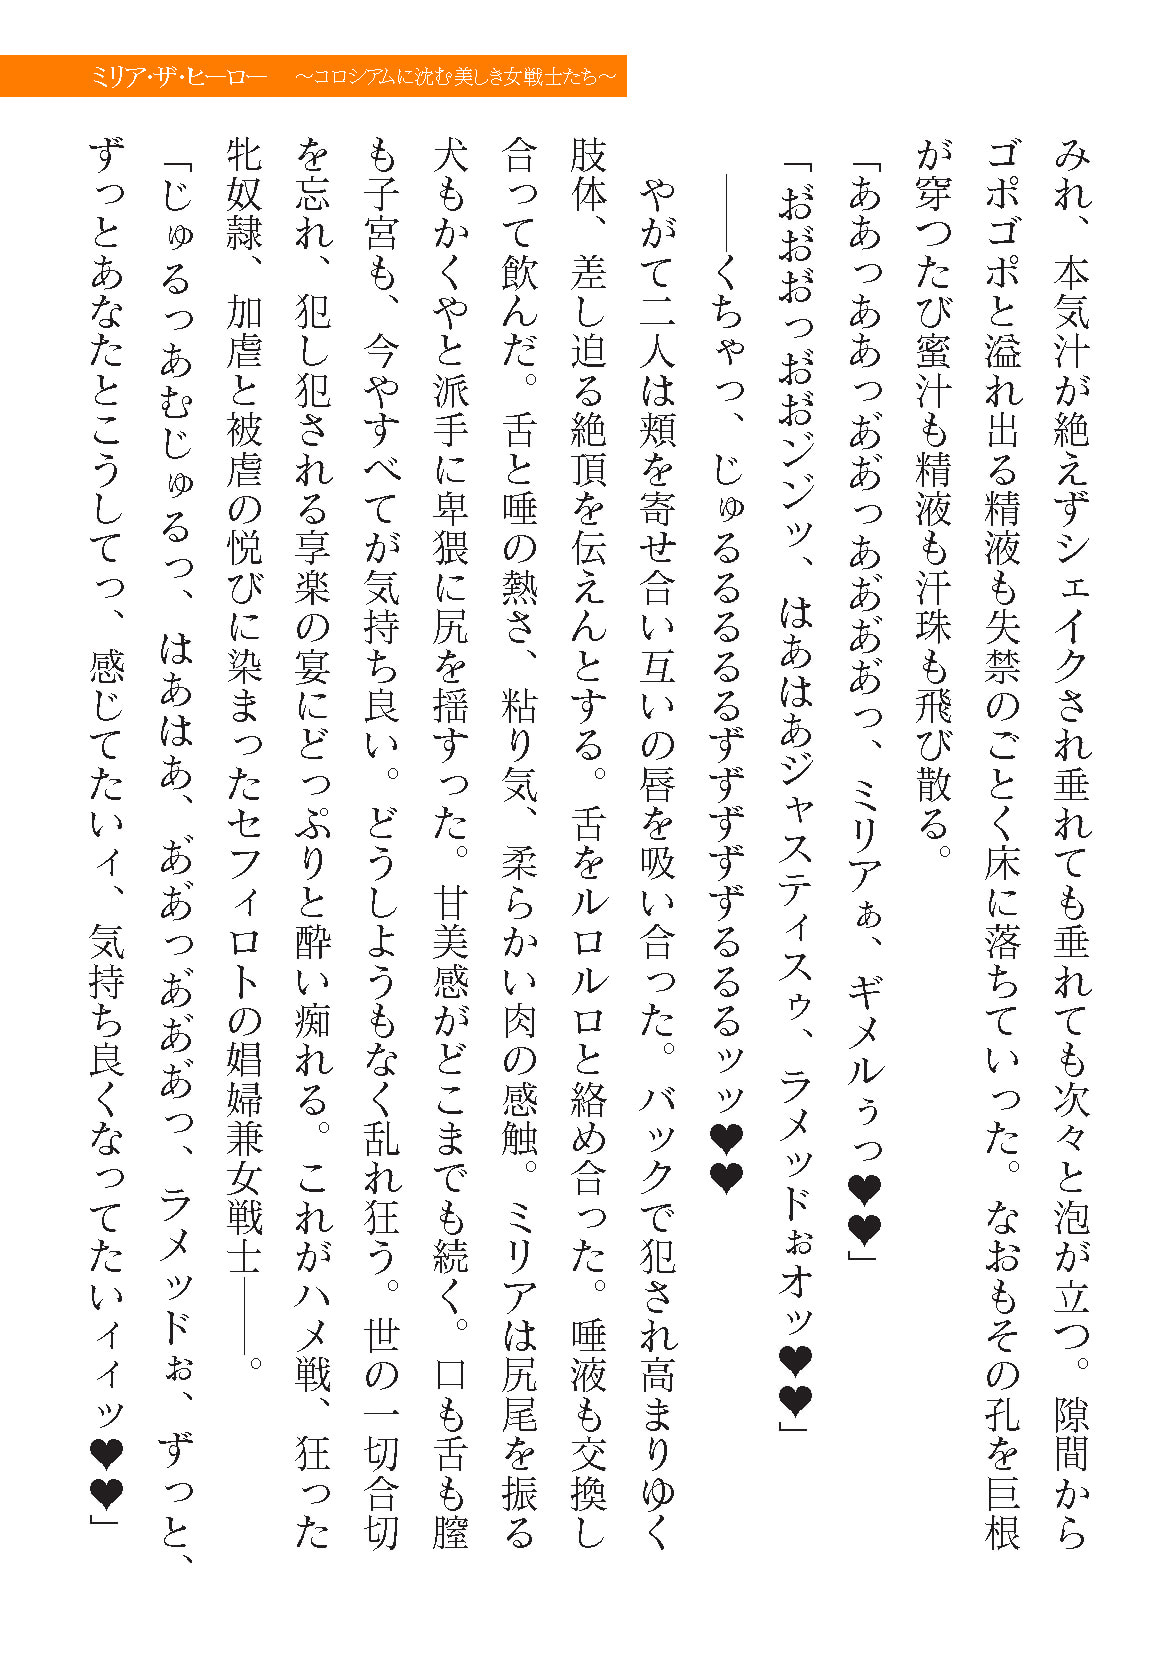 ミリア・ザ・ヒーロー　～コロシアムに沈む美しき女戦士たち～
みれ、本気汁が絶えずシェイクされ垂れても垂れても次々と泡が立つ。隙間から
ゴポゴポと溢れ出る精液も失禁のごとく床に落ちていった。なおもその孔を巨根
が穿つたび蜜汁も精液も汗珠も飛び散る。
「ああっああっあ゙あ゙っあ゙あ゙あ゙っ、ミリアぁ、ギメルぅっ♥♥」
「お゙お゙お゙っお゙お゙ンンッ、はあはあジャスティスゥ、ラメッドぉオッ♥♥」
――くちゃっ、じゅるるるるずずずずずるるるッッ♥♥
やがて二人は頬を寄せ合い互いの唇を吸い合った。バックで犯され高まりゆく
肢体、差し迫る絶頂を伝えんとする。舌をルロルロと絡め合った。唾液も交換し
合って飲んだ。舌と唾の熱さ、粘り気、柔らかい肉の感触。ミリアは尻尾を振る
犬もかくやと派手に卑猥に尻を揺すった。甘美感がどこまでも続く。口も舌も膣
も子宮も、今やすべてが気持ち良い。どうしようもなく乱れ狂う。世の一切合切
を忘れ、犯し犯される享楽の宴にどっぷりと酔い痴れる。これがハメ戦、狂った
牝奴隷、加虐と被虐の悦びに染まったセフィロトの娼婦兼女戦士――。
「じゅるっあむじゅるっ、はあはあ、あ゙あ゙っあ゙あ゙あ゙っ、ラメッドぉ、ずっと、
ずっとあなたとこうしてっ、感じてたいィ、気持ち良くなってたいィィッ♥♥」